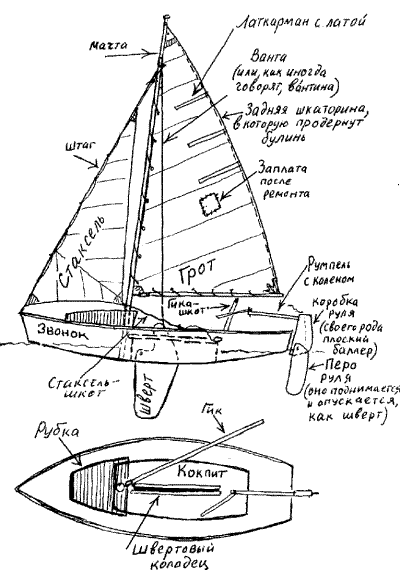 Латкарман с латой
мачта
Ванта
(или, как иногда
говорят, ва́нтина)
Задняя шкаторина,
в которую продернут
булинь
штаг
Заплата
после
ремонта
Стаксель
Грот
Румпель
с коленом
Гика-
шкот
коробка
руля
(своего рода
плоский
баллер)
Звонок
Стаксель-
шкот
шверт
Перо
руля
(оно поднимается
и опускается,
как шверт)
Гик
Рубка
Кокпит
Швертовый
колодец